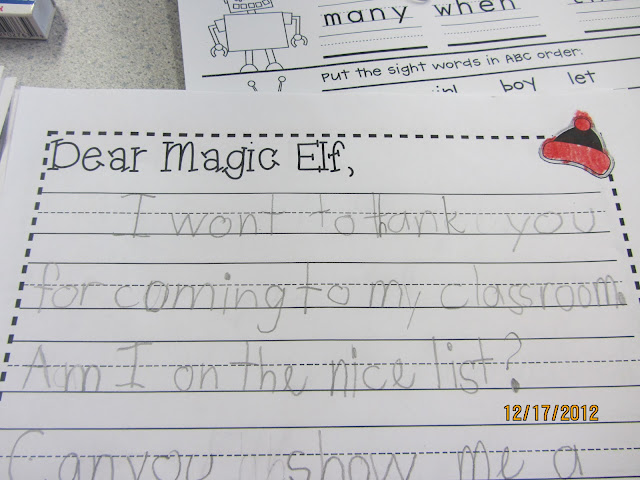 many when
Put the sight words in ABC order.
boy let
Dear Magic Elf,
I wont to thank you
for coming to my classroom.
Am I on the nice list?
12/17/2012
Can you show me a